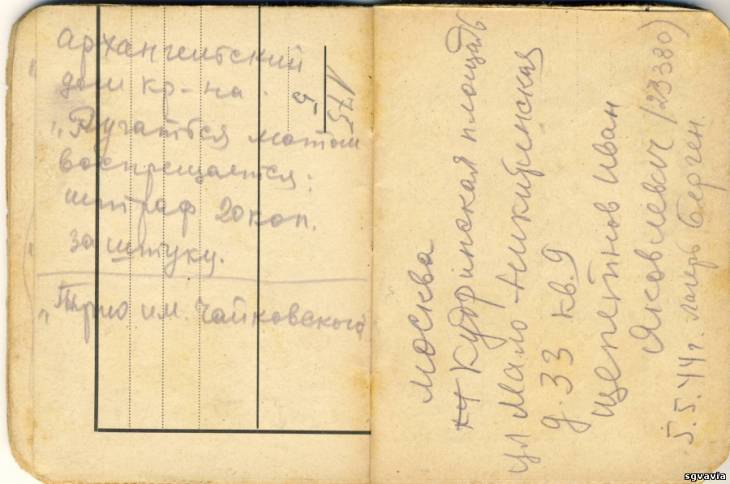 архангельский
дом кр-на.
"Ругаться матом
воспрещается:
штраф 20 коп.
за штуку.
"Трио им. Чайковского
175
5
москва
Кудринская площадь
ул мало никитенская
д. 33 кв. 9
Щепетнов Иван
Яковлевич (23380)
5.5.44г. лагерь Берген
sgvavia